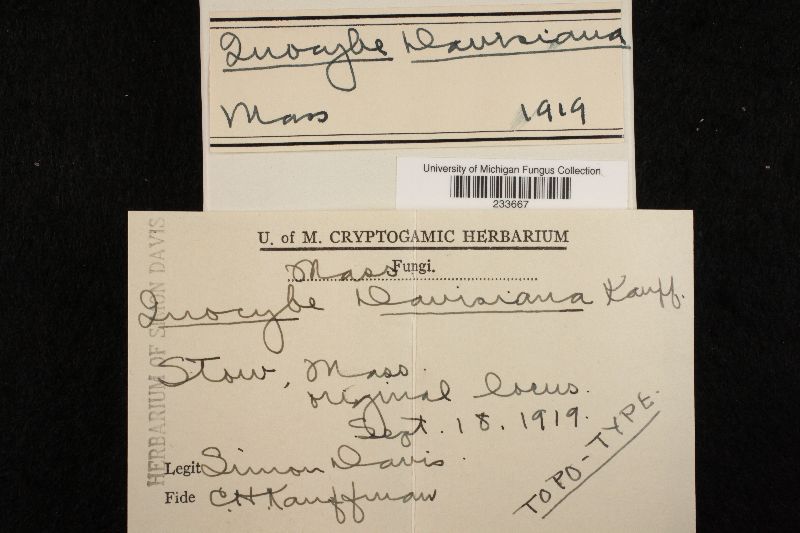 Inocybe Davisiana
Mass 1919
University of Michigan Fungus Collection
233667
U. of M. CRYPTOGAMIC HERBARIUM
Mass Fungi.
Inocybe Davisiana Kauff.
Stow, Mass.
original locus.
Sept. 18. 1919.
Legit Simon Davis.
Fide C.H. Kauffman
TOPO-TYPE.
HERBARIUM OF SIMON DAVIS